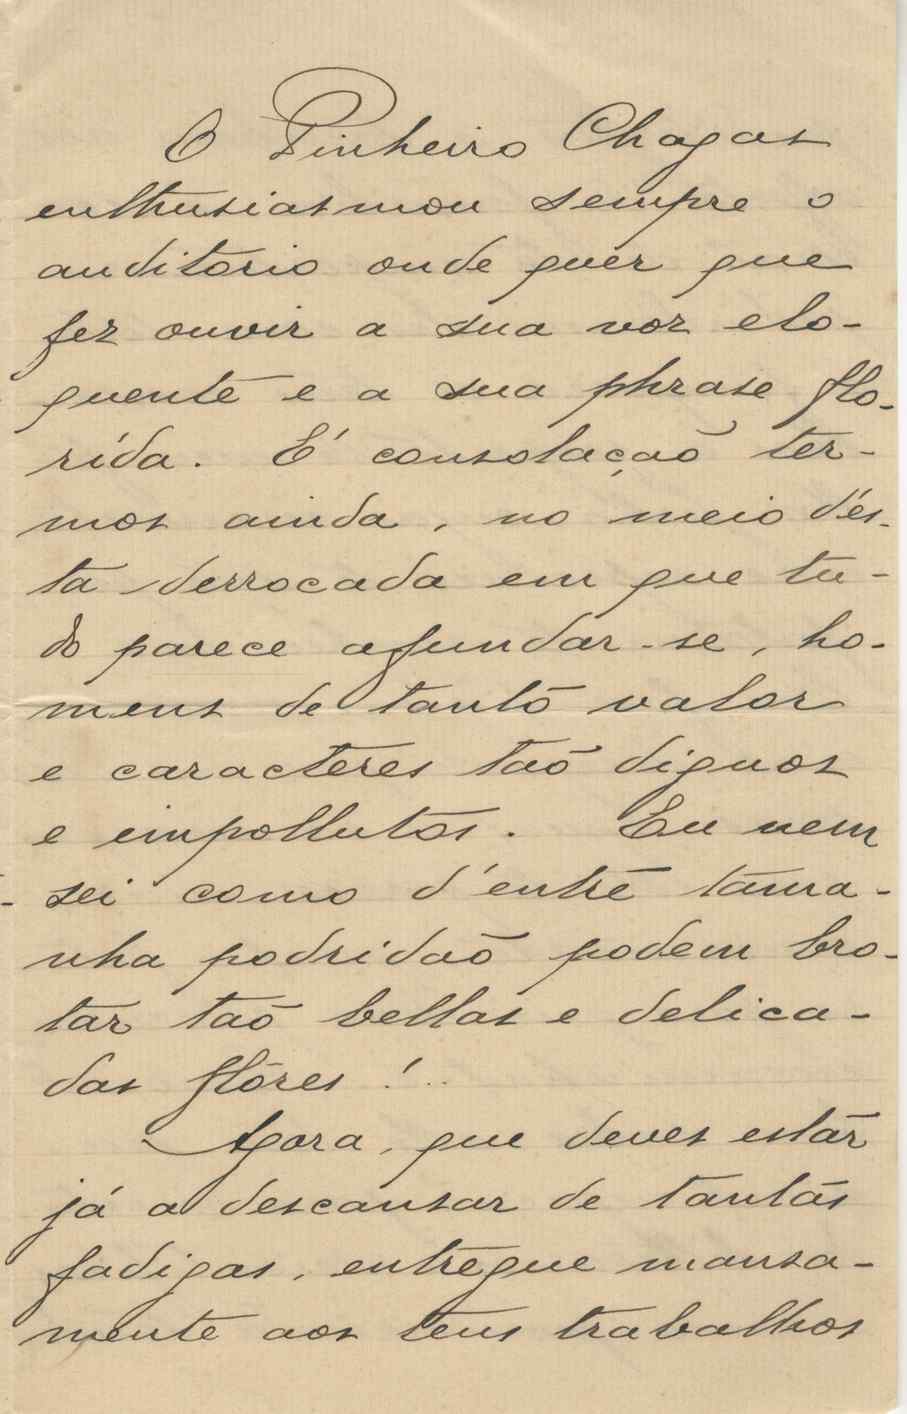 O Pinheiro Chagas
enthusiasmou sempre o
auditorio onde quer que
fez ouvir a sua voz elo-
quente e a sua phrase flo-
rída. É consolação ter-
mos ainda, no meio d'és-
ta derrocada em que tu-
do parece afundar-se, ho-
mens de tanto valor
e caracteres tão dignos
e impollutos. Eu nem
sei como d'entre tama-
nha podridão podem bro-
tar tão bellas e delica-
das flôres!..
Agora, que deves estár
já a descansar de tantas
fadigas, entregue mansa-
mente aos teus trabalhos